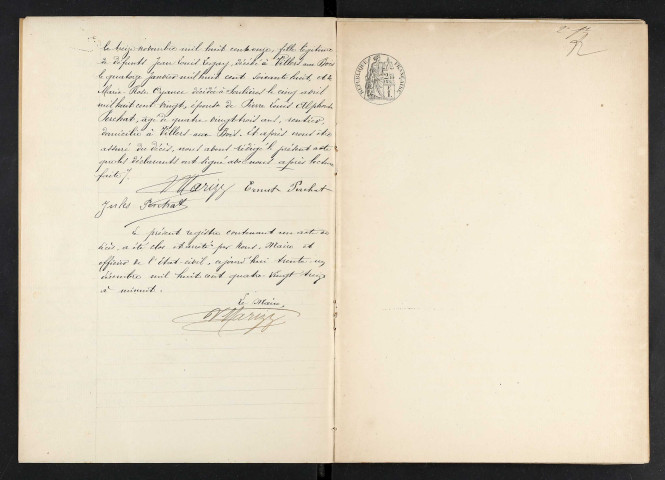 le treize novembre mil huit cent onze, fille légitime
de défunts Jean Louis Legay, décédé à Villers aux Bois
le quatorze janvier mil huit cent soixante huit, et de
Marie Rose Oyance décédée à Soulières le cinq avril
mil huit cent vingt, épouse de Pierre Louis Alphonse
Perchat, âgé de quatre-vingt trois ans, rentier,
domicilié à Villers aux Bois. Et après nous être
assuré du décès, nous avons rédigé le présent acte
que les déclarants ont signé avec nous après lecture
faite.
Ernest Perchat
Jules Perchat
Le présent registre contenant un acte de
décès a été clos et arrêté par nous, Maire et
officier de l'état-civil, aujourd'hui trente-un
décembre mil huit cent quatre vingt
à minuit.
Le Maire,
RÉPUBLIQUE FRANÇAISE